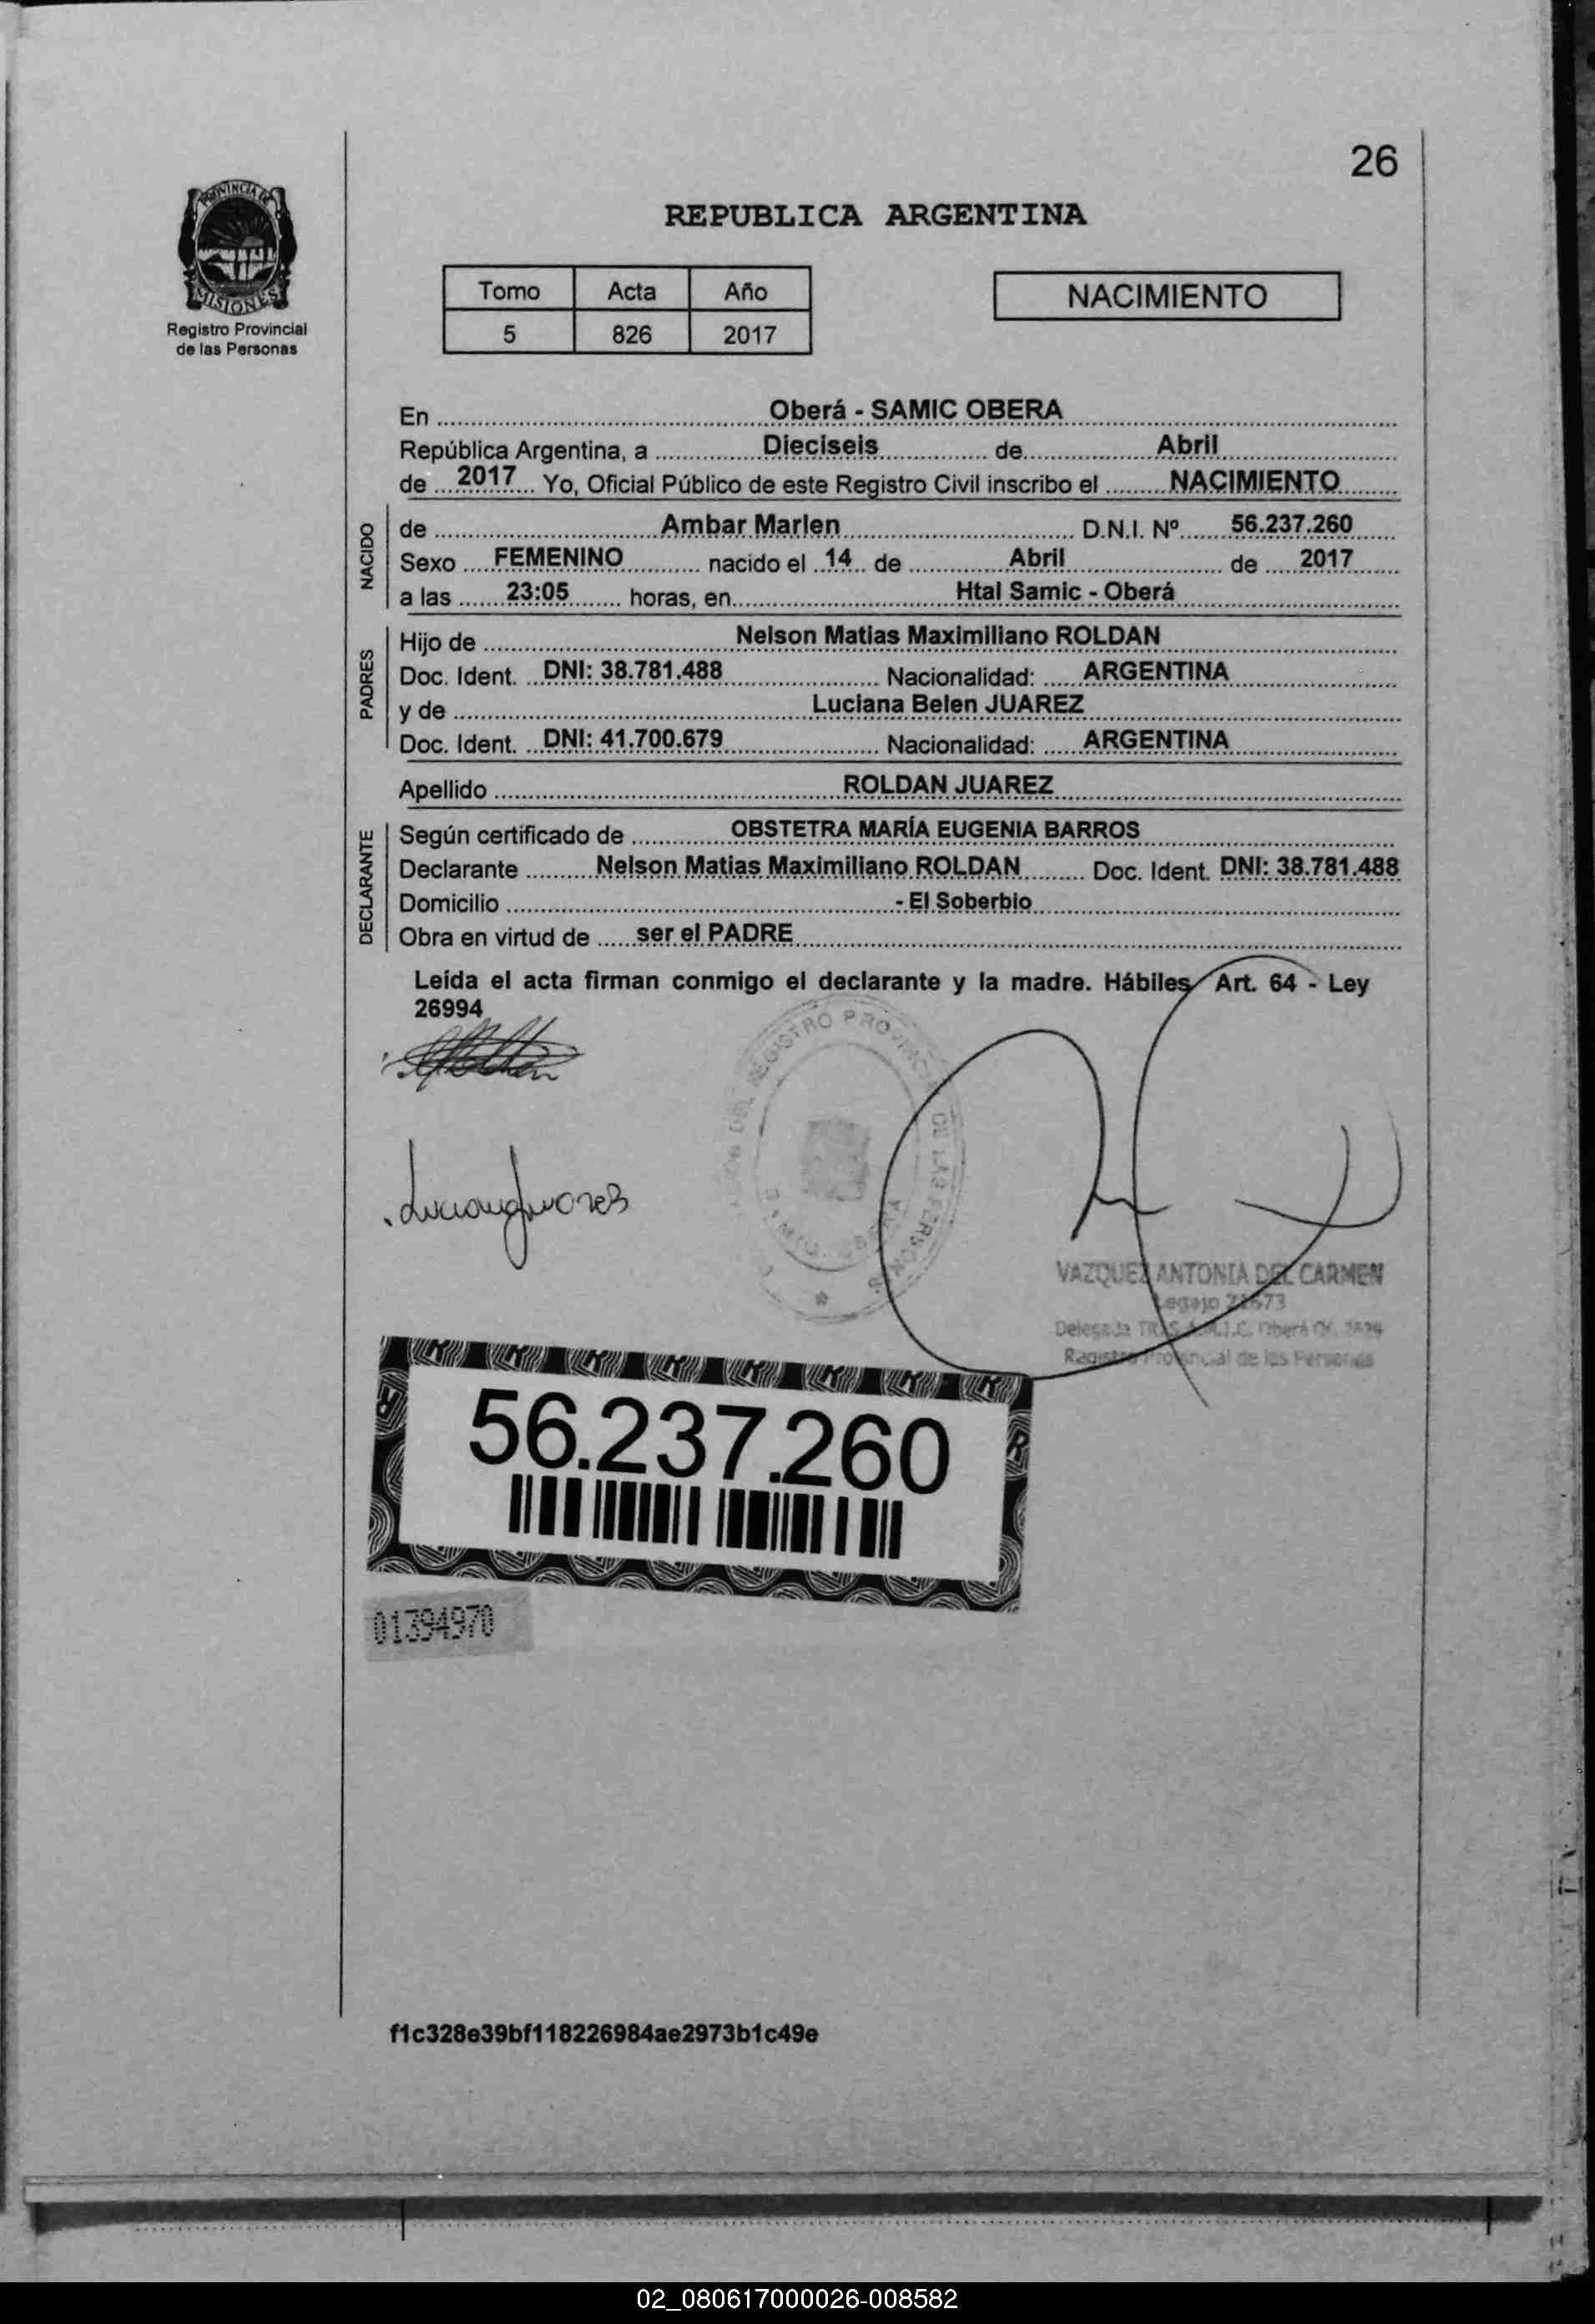 26
PROVINCIA DE
MISIONES
Registro Provincial
de las Personas
REPUBLICA ARGENTINA
Tomo Acta Año
5 826 2017
NACIMIENTO
En Oberá - SAMIC OBERA
República Argentina, a Dieciseis de Abril
de 2017 Yo, Oficial Público de este Registro Civil inscribo el NACIMIENTO
NACIDO
de Ambar Marlen D.N.I. Nº 56.237.260
Sexo FEMENINO nacido el 14 de Abril de 2017
a las 23:05 horas, en Htal Samic - Oberá
PADRES
Hijo de Nelson Matias Maximiliano ROLDAN
Doc. Ident. DNI: 38.781.488 Nacionalidad: ARGENTINA
y de Luciana Belen JUAREZ
Doc. Ident. DNI: 41.700.679 Nacionalidad: ARGENTINA
Apellido ROLDAN JUAREZ
DECLARANTE
Según certificado de OBSTETRA MARÍA EUGENIA BARROS
Declarante Nelson Matias Maximiliano ROLDAN Doc. Ident. DNI: 38.781.488
Domicilio - El Soberbio
Obra en virtud de ser el PADRE
Leída el acta firman conmigo el declarante y la madre. Hábiles Art. 64 - Ley
26994
DEL REGISTRO PROVINCIAL DE LAS PERSONAS
VAZQUEZ ANTONIA DEL CARMEN
Legajo
Registro Provincial de las Personas
56.237.260
01394970
f1c328e39bf118226984ae2973b1c49e
02_080617000026-008582